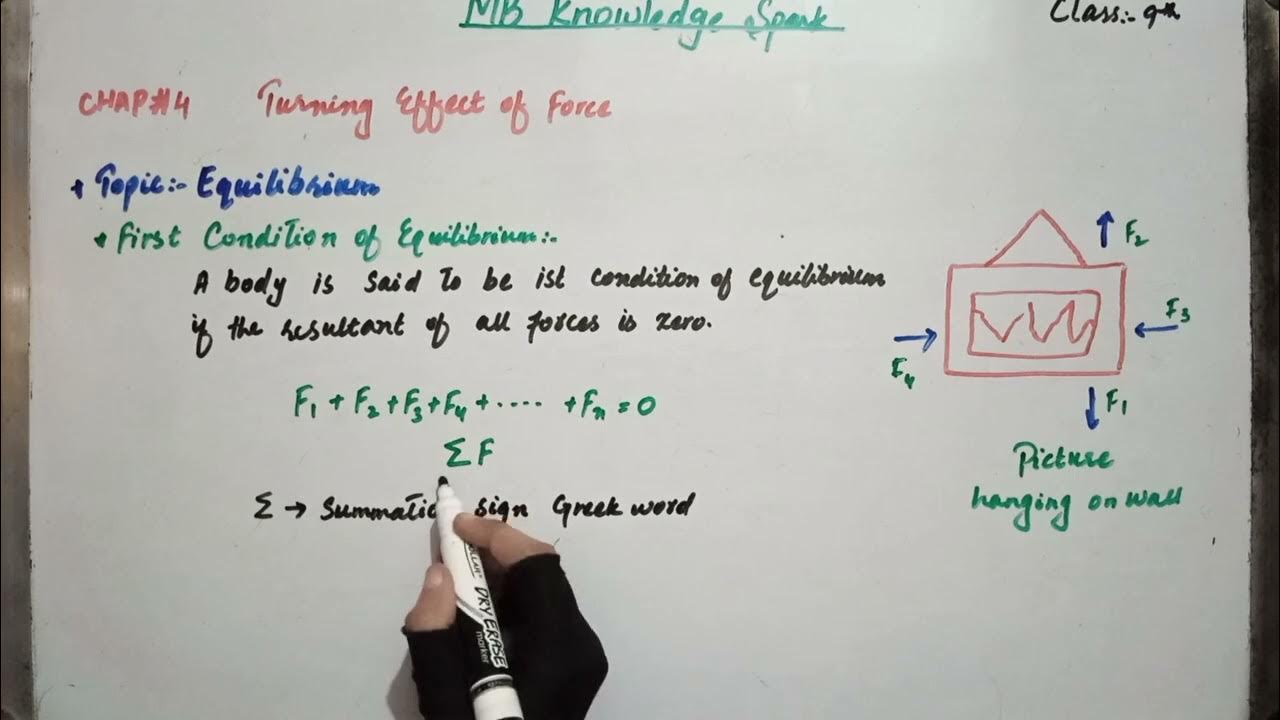 MB Knowledge Spark
Class:- 9th
CHAP#4 Turning Effect of Force
Topic:- Equilibrium
First Condition of Equilibrium:-
A body is said to be ist condition of equilibrium
if the resultant of all forces is zero.
F₁ + F₂ + F₃ + F₄ + ···· + Fₙ = 0
Σ F
Σ → Summatio sign Greek word
F₂
F₃
F₄
F₁
Picture
hanging on wall
DRY ERASE
marker